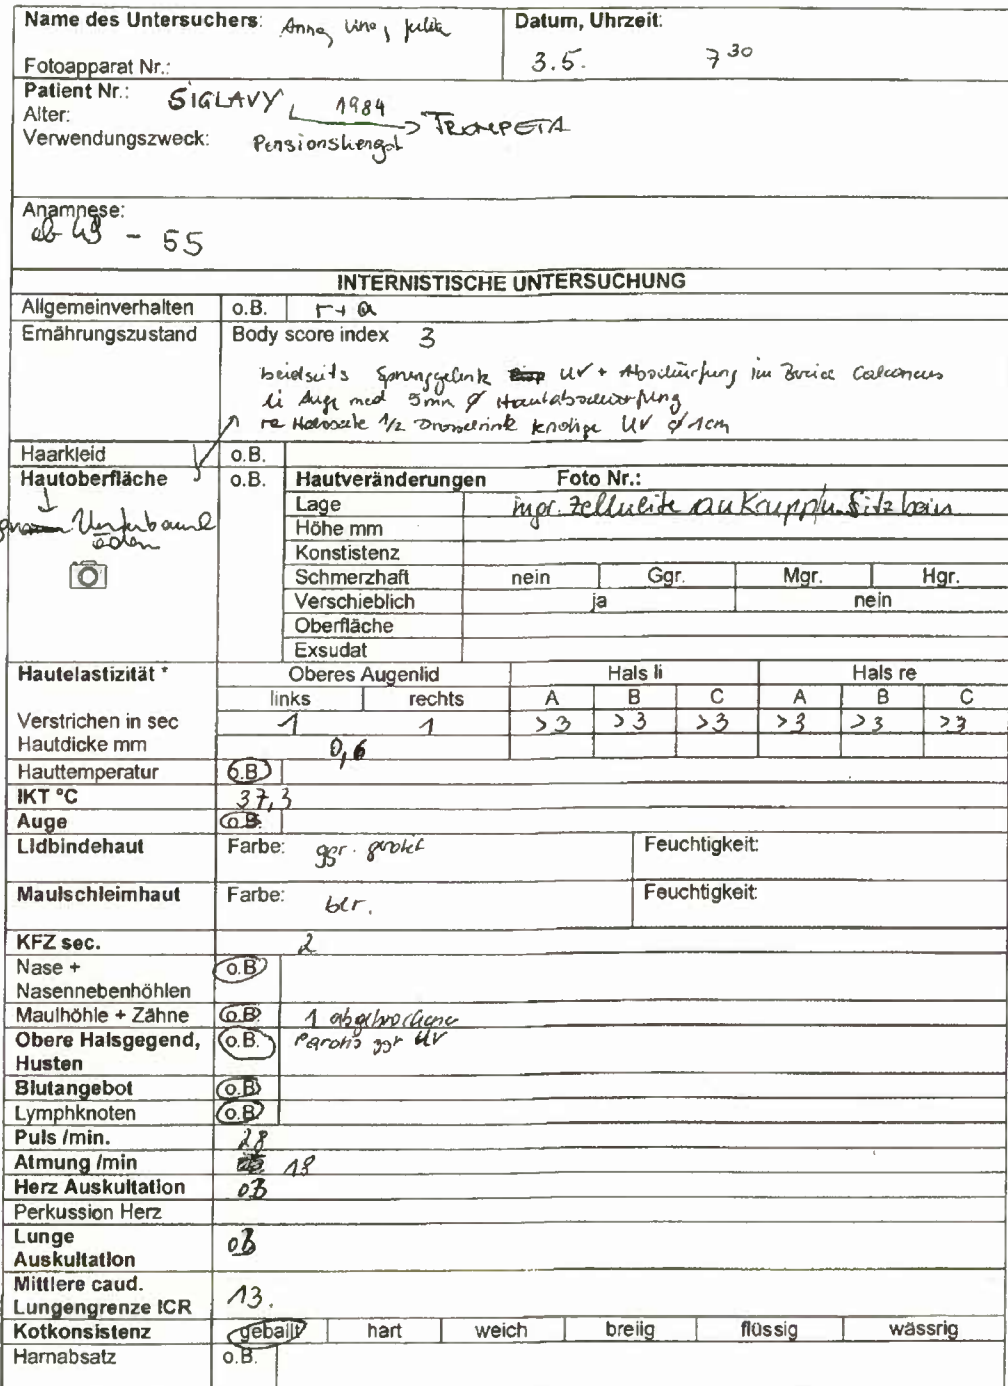 Name des Untersuchers: Anna, Lina, Julia
Datum, Uhrzeit:
3.5. 7 30
Fotoapparat Nr.:
Patient Nr.: SIGLAVY
Alter: 1984
TROMPETA
Verwendungszweck: Pensionshengst
Anamnese:
ab 49 - 55
INTERNISTISCHE UNTERSUCHUNG
Allgemeinverhalten o.B. r + a
Ernährungszustand Body score index 3
beidseits Sprunggelenk UV + Abschürfung im Calcaneus
li Auge med 5mm Ø Hautabschürfung
re Halsseite 1/2 knotige UV Ø 1cm
Haarkleid o.B.
Hautoberfläche o.B. Hautveränderungen Foto Nr.:
Lage Zellulite an Kruppe u. Sitzbein
Unterbauch
ödem
Höhe mm
Konstistenz
Schmerzhaft nein Ggr. Mgr. Hgr.
Verschieblich ja nein
Oberfläche
Exsudat
Hautelastizität * Oberes Augenlid Hals li Hals re
links rechts A B C A B C
Verstrichen in sec 1 1 >3 >3 >3 >3 >3 >3
Hautdicke mm 0,6
Hauttemperatur o.B.
IKT °C 37,3
Auge o.B.
Lidbindehaut Farbe: ggr. gerötet Feuchtigkeit:
Maulschleimhaut Farbe: blr. Feuchtigkeit:
KFZ sec. 2
Nase + o.B.
Nasennebenhöhlen
Maulhöhle + Zähne o.B. 1 abgebrochene
Obere Halsgegend, o.B. Parotis ggr UV
Husten
Blutangebot o.B.
Lymphknoten o.B.
Puls /min. 28
Atmung /min 18
Herz Auskultation oB
Perkussion Herz
Lunge oB
Auskultation
Mittlere caud.
Lungengrenze ICR 13.
Kotkonsistenz geballt hart weich breiig flüssig wässrig
Harnabsatz o.B.